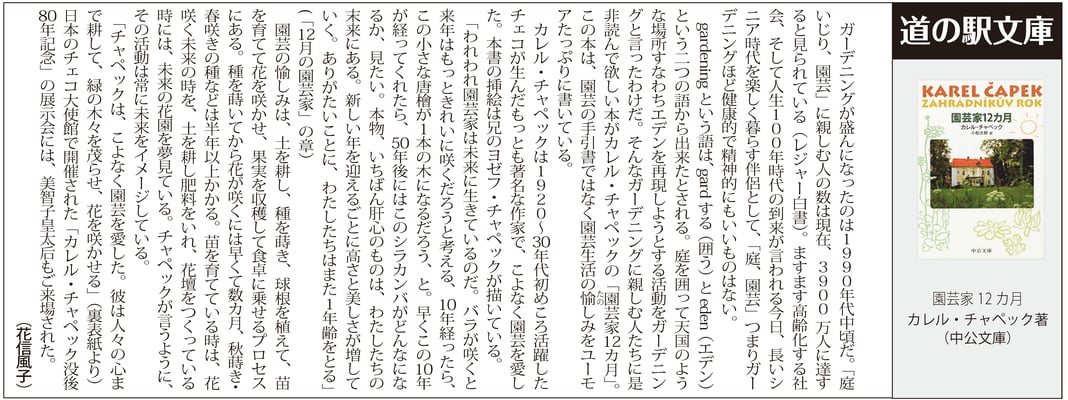 道の駅文庫
KAREL ČAPEK
ZAHRADNIKŮV ROK
園芸家12カ月
カレル・チャペック
小松太郎 訳
中公文庫
園芸家 12 カ月
カレル・チャペック著
（中公文庫）
ガーデニングが盛んになったのは１９９０年代中頃だ。「庭
いじり、園芸」に親しむ人の数は現在、３９００ 万人に達す
ると見られている（レジャー白書）。ますます高齢化する社
会、そして人生１００年時代の到来が言われる今日、長いシ
ニア時代を楽しく暮らす伴侶として、「庭、園芸」つまりガー
デニングほど健康的で精神的にもいいものはない。
gardening という語は、gard する（囲う）と eden（エデン）
という二つの語から出来たとされる。庭を囲って天国のよう
な場所すなわちエデンを再現しようとする活動をガーデニン
グと言ったわけだ。そんなガーデニングに親しむ人たちに是
非読んで欲しい本がカレル・チャペックの「園芸家12カ月」。
この本は、園芸の手引書ではなく園芸生活の愉（たの）しみをユーモ
アたっぷりに書いている。
カレル・チャペックは１９２０～30年代初めころ活躍した
チェコが生んだもっとも著名な作家で、こよなく園芸を愛し
た。本書の挿絵は兄のヨゼフ・チャペックが描いている。
「われわれ園芸家は未来に生きているのだ。バラが咲くと
来年はもっときれいに咲くだろうと考える、10年経ったら、
この小さな唐檜が１本の木になるだろう、と。早くこの10年
が経ってくれたら、50年後にはこのシラカンバがどんなにな
るか、見たい。本物、いちばん肝心のものは、わたしたちの
末来にある。新しい年を迎えるごとに高さと美しさが増して
いく。ありがたいことに、わたしたちはまた１年齢をとる」
（「12月の園芸家」の章）
園芸の愉しみは、土を耕し、種を蒔き、球根を植えて、苗
を育てて花を咲かせ、果実を収穫して食卓に乗せるプロセス
にある。種を蒔いてから花が咲くには早くて数カ月、秋蒔き・
春咲きの種などは半年以上かかる。苗を育てている時は、花
咲く未来の時を、土を耕し肥料をいれ、花壇をつくっている
時には、未来の花園を夢見ている。チャペックが言うように、
その活動は常に未来をイメージしている。
「チャペックは、こよなく園芸を愛した。彼は人々の心ま
で耕して、緑の木々を茂らせ、花を咲かせる」（裏表紙より）
日本のチェコ大使館で開催された「カレル・チャペック没後
80年記念」の展示会には、美智子皇太后もご来場された。
（花信風子）